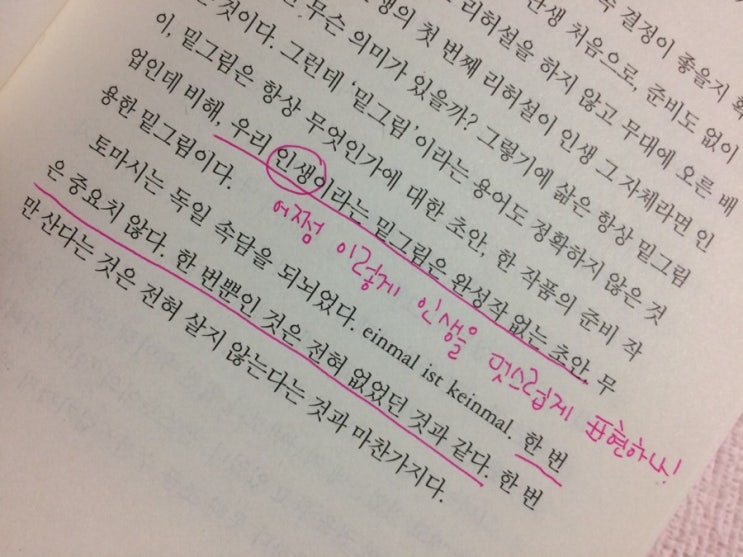 결정이 좋을지 확
난생 처음으로, 준비도 없이
리허설을 하지 않고 무대에 오른 배
생의 첫 번째 리허설이 인생 그 자체라면 인
무슨 의미가 있을까? 그렇기에 삶은 항상 밑그림
은 것이다. 그런데 '밑그림'이라는 용어도 정확하지 않은 것
이, 밑그림은 항상 무엇인가에 대한 초안, 한 작품의 준비 작
업인데 비해, 우리 인생이라는 밑그림은 완성작 없는 초안, 무
용한 밑그림이다.
어쩜 이렇게 인생을 멋스럽게 표현하나!
토마시는 독일 속담을 되뇌었다. einmal ist keinmal. 한 번
은 중요치 않다. 한 번뿐인 것은 전혀 없었던 것과 같다. 한 번
만 산다는 것은 전혀 살지 않는다는 것과 마찬가지다.